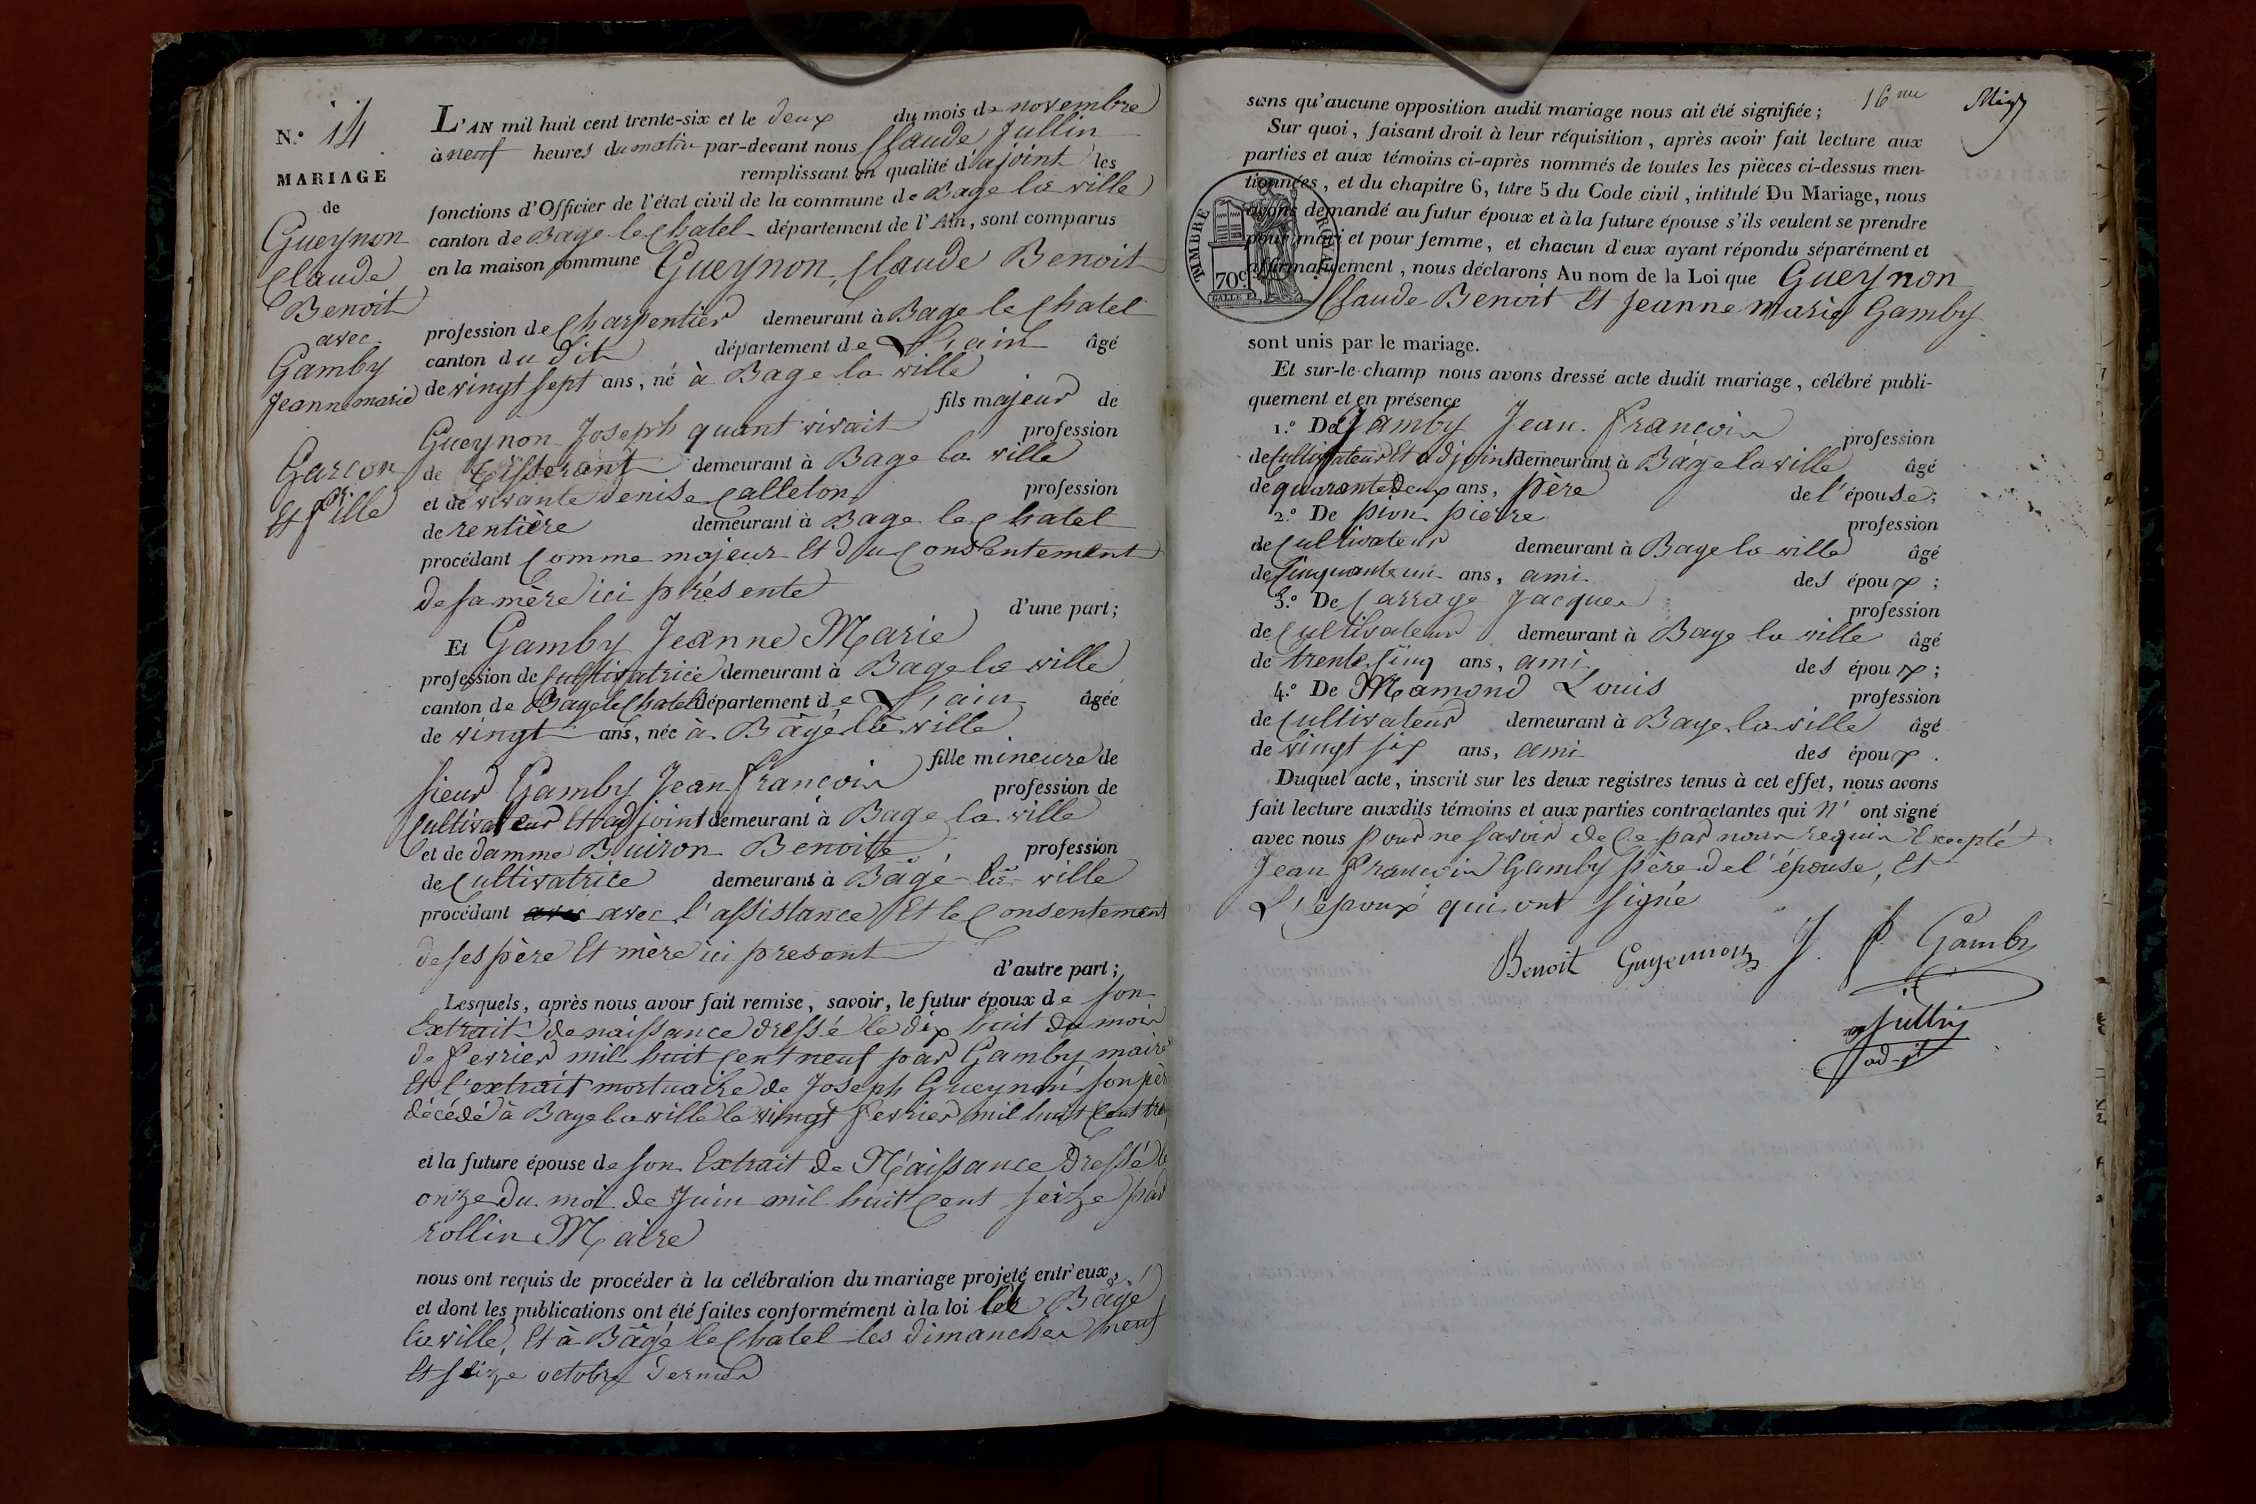 N.° 14
MARIAGE
de
Gueynon
Claude
Benoit
avec
Gamby
Jeanne marie
Garçon
et fille
L'AN mil huit cent trente-six et le deux du mois de novembre
à neuf heures du matin par-devant nous Claude Jullin
remplissant en qualité d'ajoint les
fonctions d'Officier de l'état civil de la commune de Bage la ville
canton de Bage le Chatel département de l'Ain, sont comparus
en la maison commune Gueynon, Claude Benoit
profession de Charpentier demeurant à Bage le Chatel
canton du dit département de L'ain âgé
de vingt sept ans, né à Bage la ville
fils majeur de
Gueynon Joseph quant vivait profession
de tisserant demeurant à Bage la ville
et de vivante denise Calleton profession
de rentière demeurant à Bage le Chatel
procédant Comme majeur Et du Consentement
de sa mère ici présente
d'une part;
Et Gamby Jeanne Marie
profession de Cultivatrice demeurant à Bage la ville
canton de Bage le Chatel département de L'ain âgée
de vingt ans, née à Bâgé la ville
fille mineure de
sieur Gamby Jean françois profession de
Cultivateur Et adjoint demeurant à Bage la ville
et de damme Buiron Benoite profession
de Cultivatrice demeurant à Bagé la ville
procédant avec l'assistance Et le Consentement
de ses père Et mère ici present
d'autre part;
Lesquels, après nous avoir fait remise, savoir, le futur époux de son
Extrait de naissance dressé le dix huit du mois
de fevrier mil huit Cent neuf par Gamby maire
Et l'extrait mortuaire de Joseph Gueynon, son père
décédé à Bage la ville le vingt fevrier mil huit Cent
et la future épouse de son Extrait de Naissance Dressé le
onze du moi de Juin mil huit Cent seize par
rollin Maire
nous ont requis de procéder à la célébration du mariage projeté entr'eux,
et dont les publications ont été faites conformément à la loi Bâgé
la ville, Et à Bâgé le Chatel les dimanches neuf
Et seize octobre dernier
16me
sans qu'aucune opposition audit mariage nous ait été signifiée;
Sur quoi, faisant droit à leur réquisition, après avoir fait lecture aux
parties et aux témoins ci-après nommés de toutes les pièces ci-dessus men-
tionnées, et du chapitre 6, titre 5 du Code civil, intitulé Du Mariage, nous
avons demandé au futur époux et à la future épouse s'ils veulent se prendre
pour mari et pour femme, et chacun d'eux ayant répondu séparément et
affirmativement, nous déclarons Au nom de la Loi que Gueynon
Claude Benoit Et Jeanne Marie Gamby
TIMBRE ROYAL
70c
sont unis par le mariage.
Et sur-le-champ nous avons dressé acte dudit mariage, célébré publi-
quement et en présence
1.° De Gamby Jean françois profession
de Cultivateur Et adjoint demeurant à Bage la ville âgé
de quarante deux ans, père de l'épouse;
2.° De pion pierre profession
de Cultivateur demeurant à Bage la ville âgé
de Cinquante un ans, ami des époux;
3.° De Carrage Jacques profession
de Cultivateur demeurant à Bage la ville âgé
de trente Cinq ans, ami des époux;
4.° De Mamond Louis profession
de Cultivateur demeurant à Bage la ville âgé
de vingt six ans, ami des époux.
Duquel acte, inscrit sur les deux registres tenus à cet effet, nous avons
fait lecture auxdits témoins et aux parties contractantes qui n'ont signé
avec nous pour ne savoir de Ce par nous requis Excepté
Jean francois Gamby père de l'épouse, Et
L'époux qui ont signé
Benoit Gueynon J. f. Gamby
Jullin
ad-jt